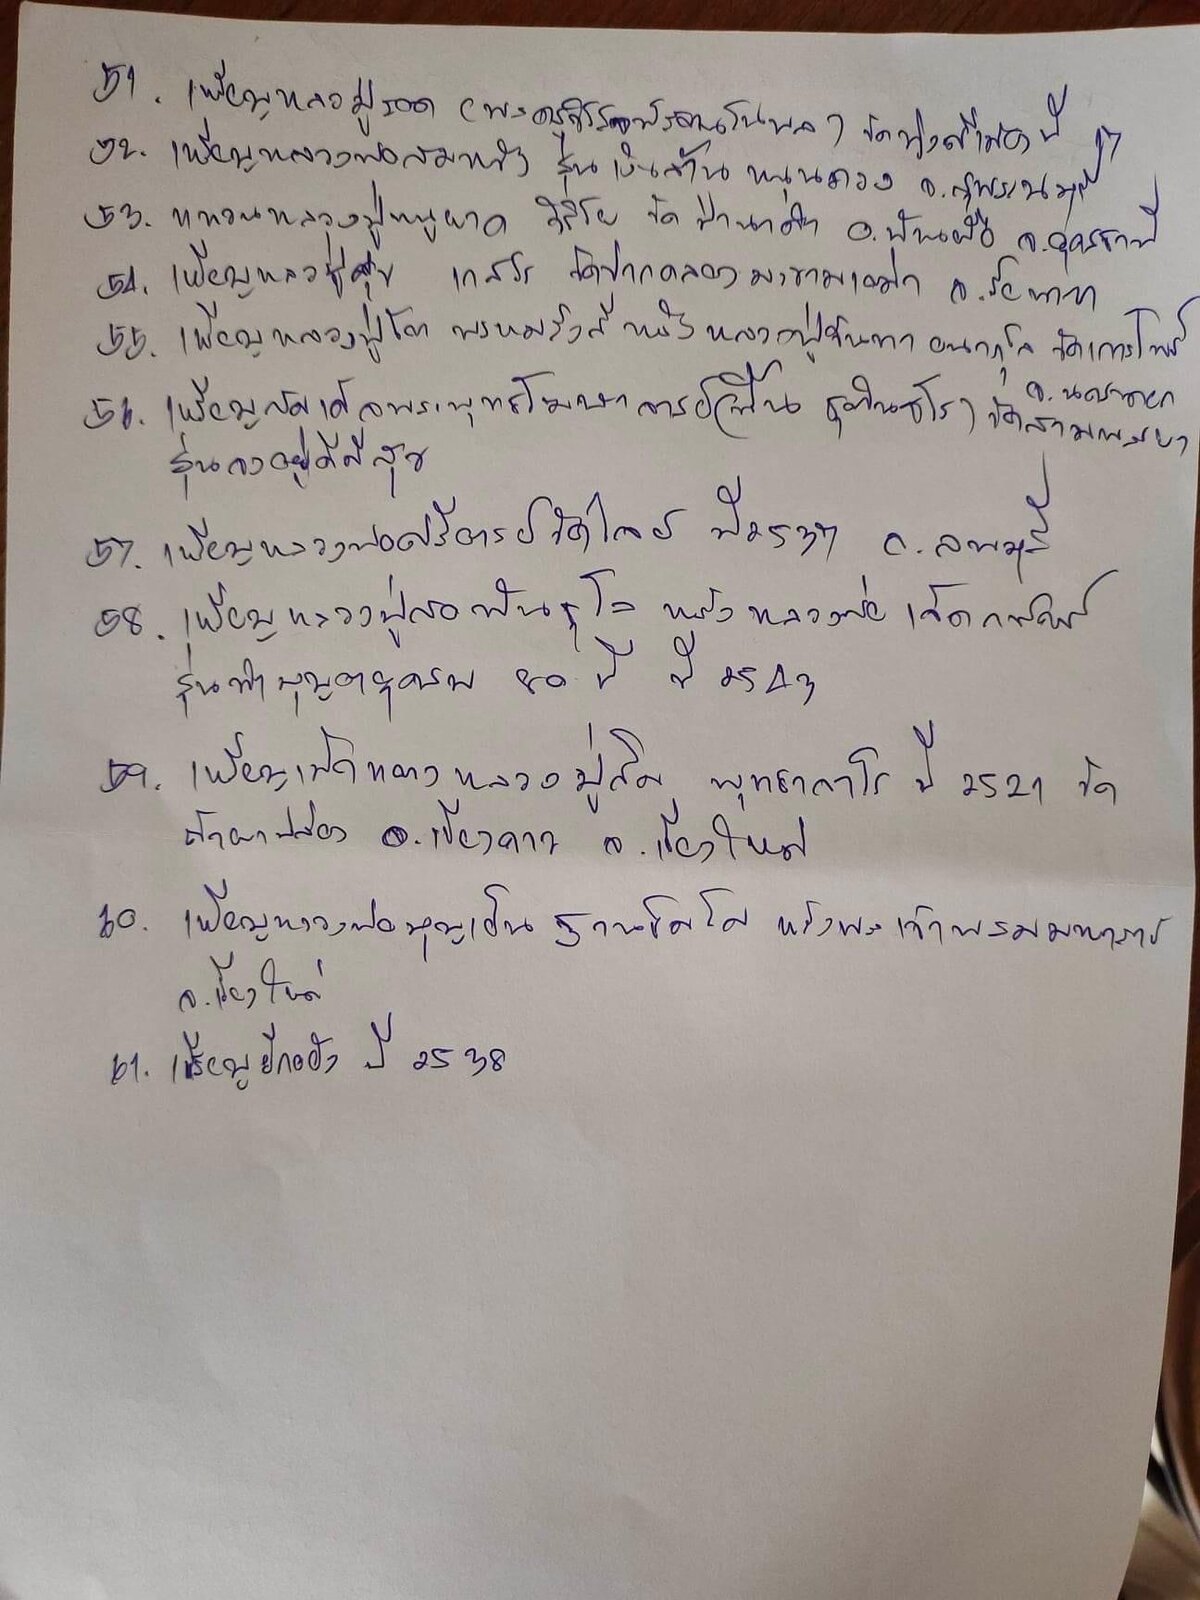 51. เหรียญหลวงปู่รอด ( วัดทุ่งศรีเมือง ปี 17
52. เหรียญหลวงพ่อสมหวัง รุ่นเงินล้าน หนุนดวง จ.สุพรรณบุรี
53. หลวงปู่หนู วัดป่านาคำ อ.บ้านผือ จ.อุดรธานี
54. เหรียญหลวงปู่ศุข เกสโร วัดปากคลองมะขามเฒ่า จ.ชัยนาท
55. เหรียญหลวงปู่โต พรหมรังสี หลังหลวงปู่จันทา อนากุโล วัดเการโพธิ์
จ.นครนายก
56. เหรียญสมเด็จพระพุทธโฆษาจารย์ (ฟื้น ชุตินฺธโร) วัดสามพระยา
รุ่นจงอยู่ดีมีสุข
57. เหรียญหลวงพ่อศรีอารย์วัดไลย์ ปี 2537 จ.ลพบุรี
58. เหรียญหลวงปู่สอ พันธุโล หลัง หลวงพ่อ
รุ่นทำบุญอายุครบ 80 ปี ปี 2543
59. เหรียญเม็ดแตงหลวงปู่สิม พุทธาจาโร ปี 2521 วัด
ถ้ำผาปล่อง อ.เชียงดาว จ.เชียงใหม่
60. เหรียญหลวงพ่อบุญเย็น ฐานธัมโม หลังพระเจ้าพรมมหาราช
จ.เชียงใหม่
61. เหรียญยี่กอฮง ปี 2538